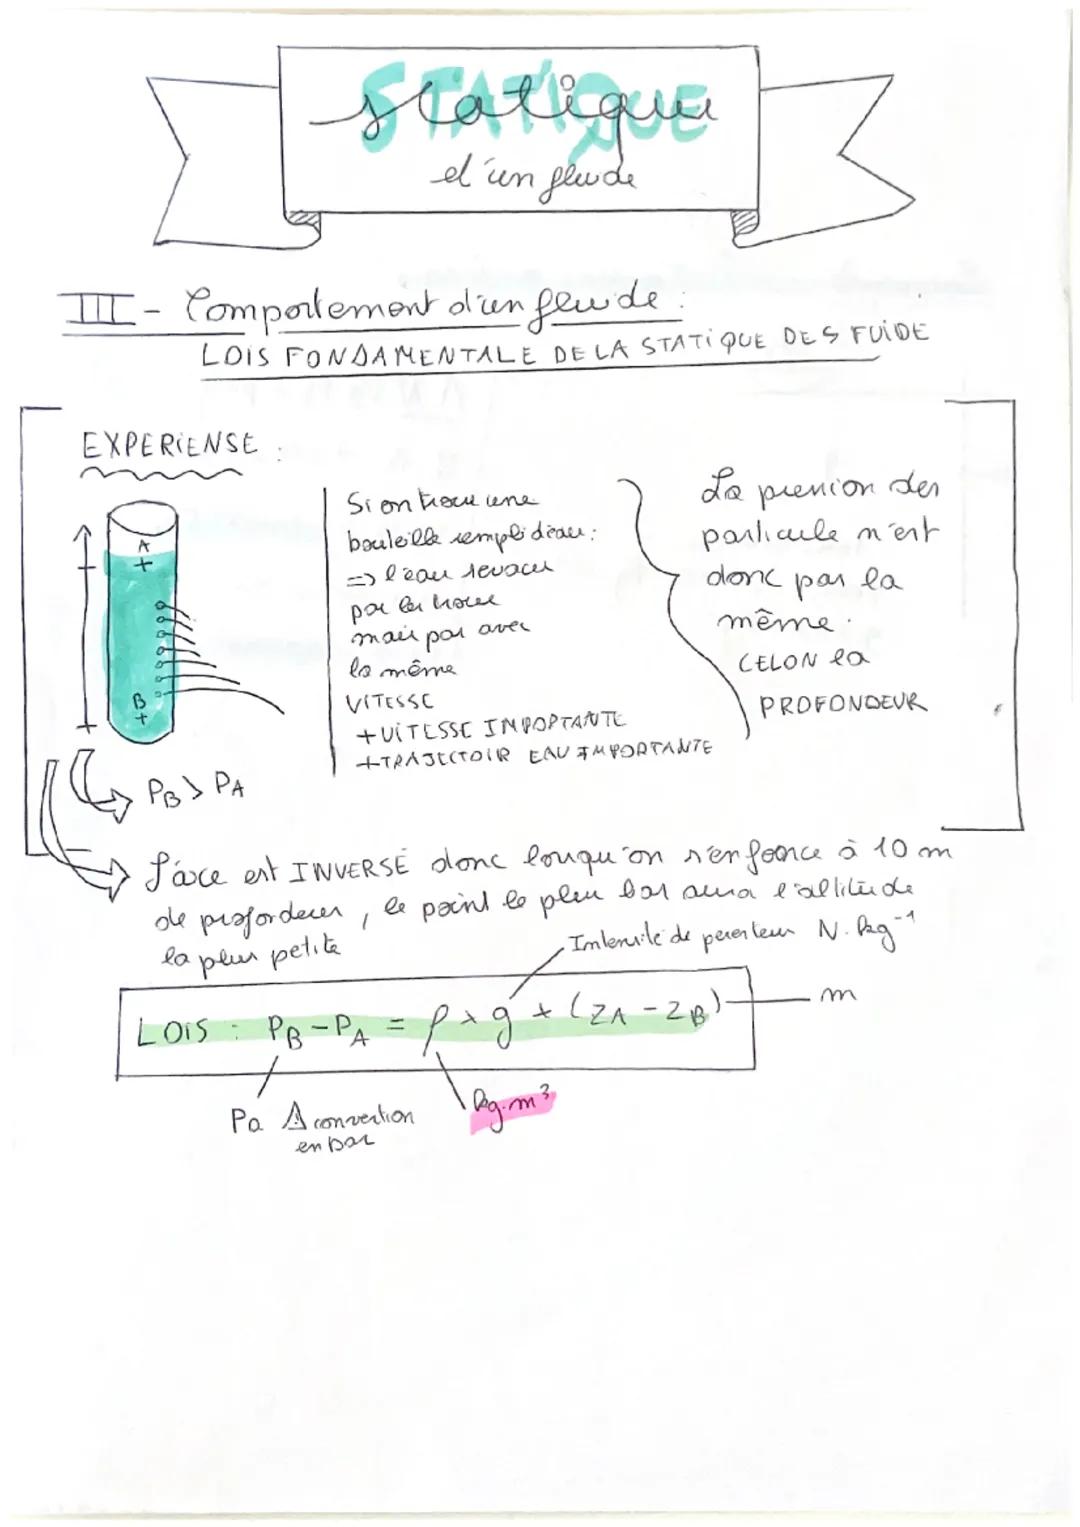 STATIQUE
statique
d'un fluide
III - Comportement d'un fluide :
LOIS FONDAMENTALE DE LA STATIQUE DES FUIDE
EXPERIENSE :
A
B
PB > PA
Si on troue une
bouteille rempli d'eau :
=> l'eau sevacu
par les troue
mais pas avec
la même
VITESSE
+ VITESSE IMPORTANTE
+ TRAJECTOIR EAU IMPORTANTE
La pression des
particule n'est
donc pas la
même.
CELON la
PROFONDEUR
L'axe est INVERSÉ donc lorsqu'on s'enfonce à 10 m
de profondeur, le point le plus bas aura l'altitude
la plus petite
Intensité de pesenteur N.kg⁻¹
LOIS : PB - PA = ρ × g × (ZA - ZB)
m
Pa ⚠ convertion
en bar
kg.m³